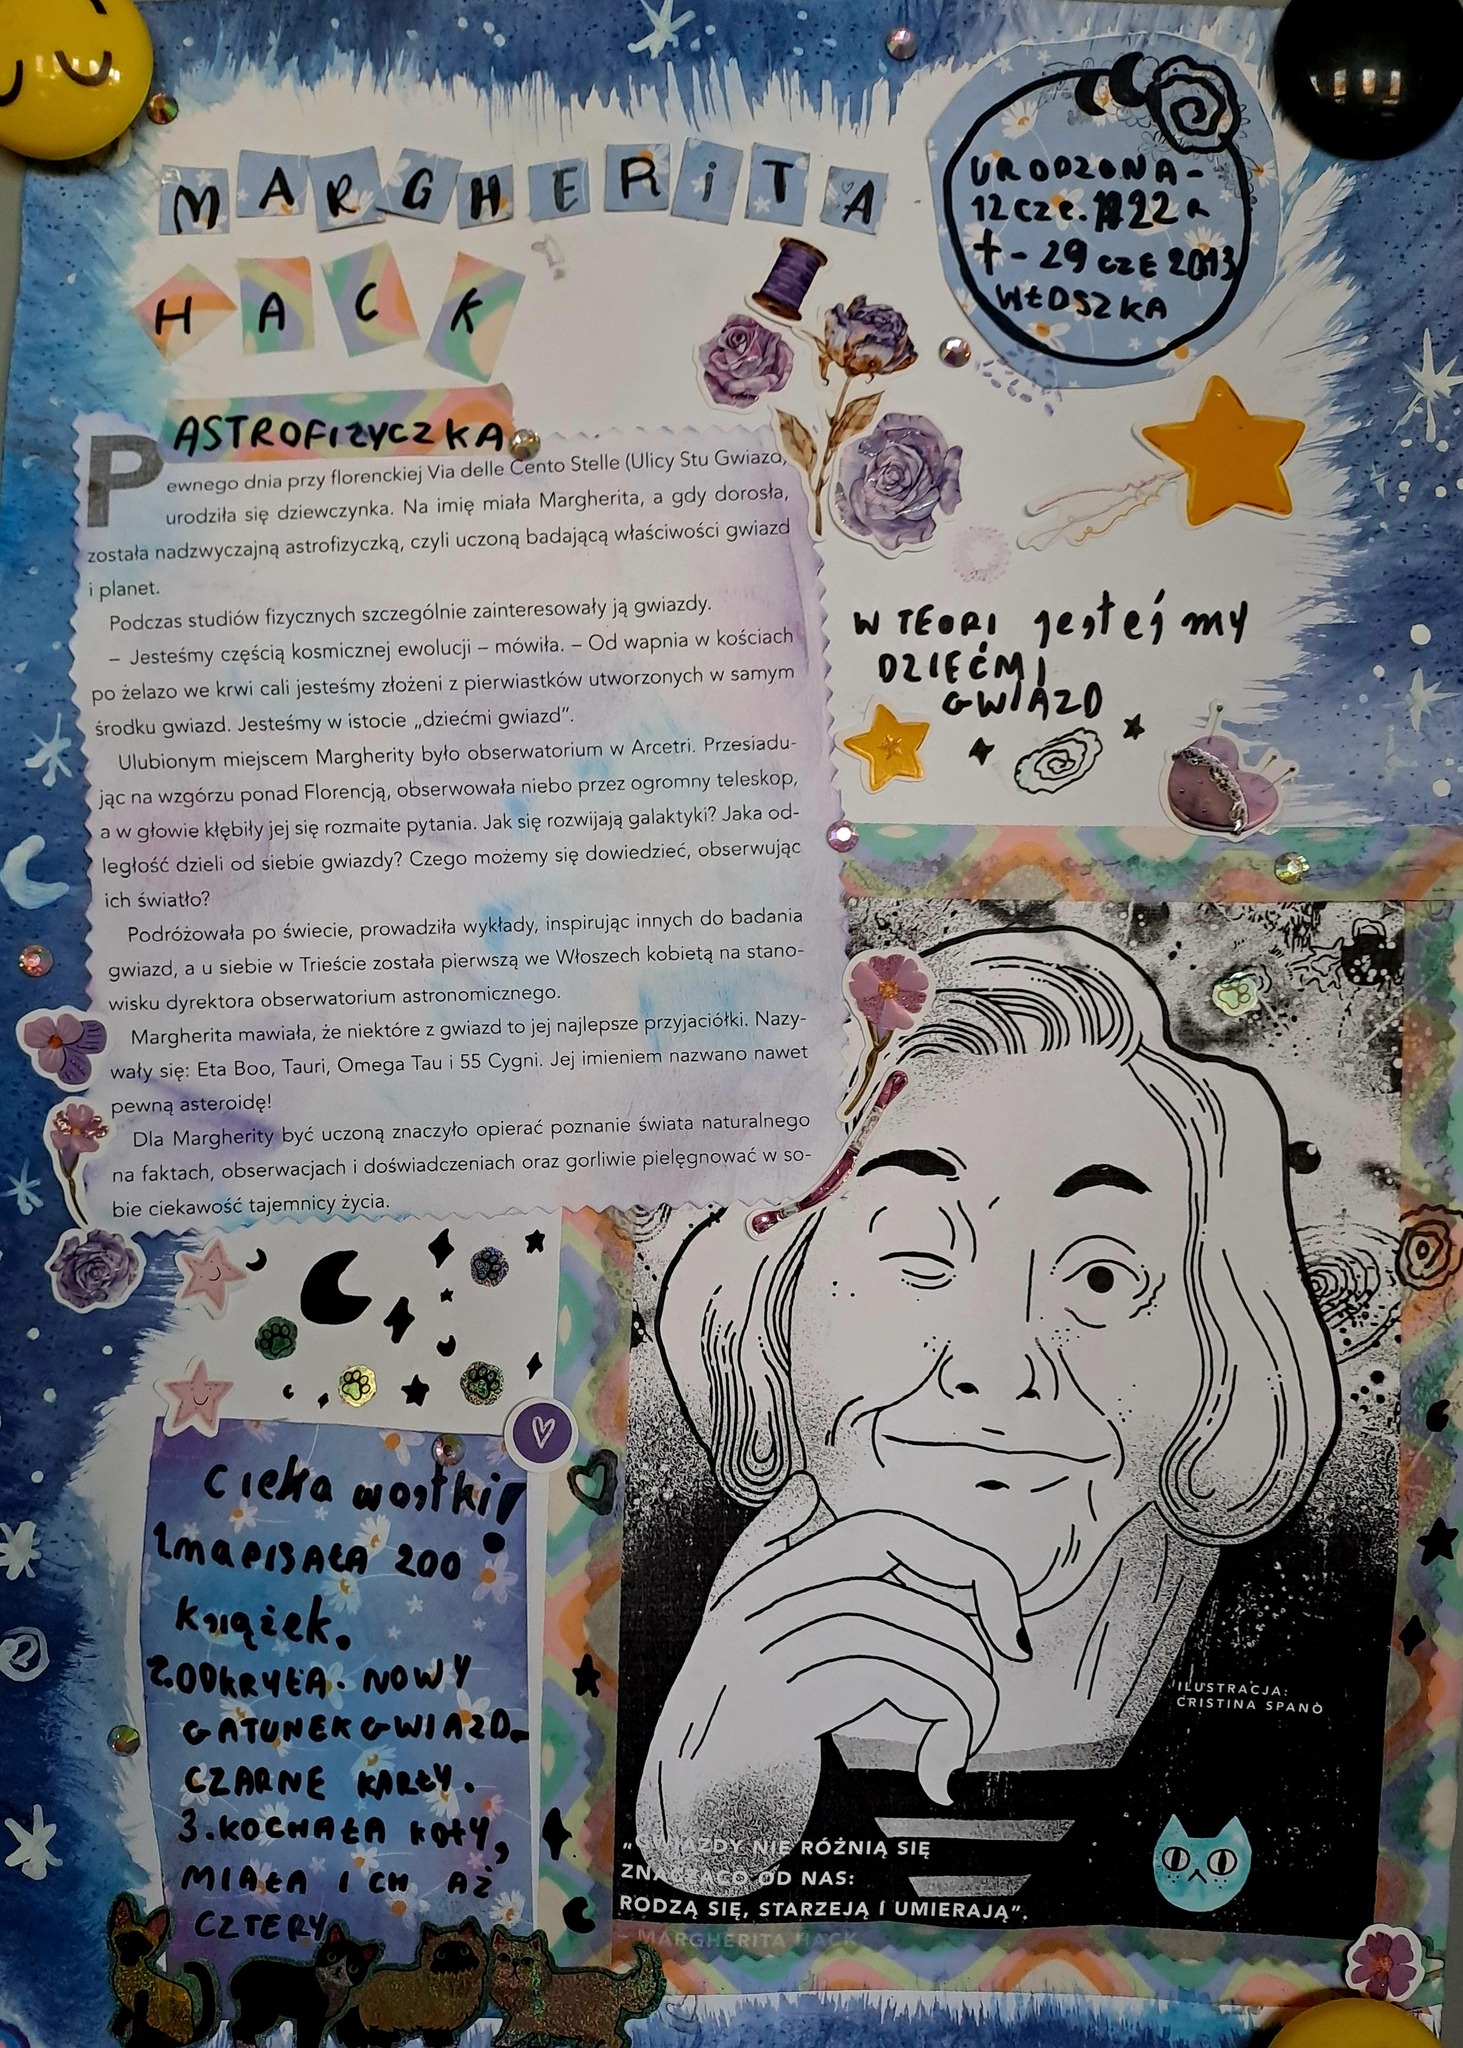 MARGHERiTA
HACK
URODZONA-
12 cze. 1922 R
† - 29 CZE 2013
WŁOSZKA
ASTROFIZYCZKA
Pewnego dnia przy florenckiej Via delle Cento Stelle (Ulicy Stu Gwiazd,
urodziła się dziewczynka. Na imię miała Margherita, a gdy dorosła,
została nadzwyczajną astrofizyczką, czyli uczoną badającą właściwości gwiazd
i planet.
Podczas studiów fizycznych szczególnie zainteresowały ją gwiazdy.
– Jesteśmy częścią kosmicznej ewolucji – mówiła. – Od wapnia w kościach
po żelazo we krwi cali jesteśmy złożeni z pierwiastków utworzonych w samym
środku gwiazd. Jesteśmy w istocie „dziećmi gwiazd”.
Ulubionym miejscem Margherity było obserwatorium w Arcetri. Przesiadu-
jąc na wzgórzu ponad Florencją, obserwowała niebo przez ogromny teleskop,
a w głowie kłębiły jej się rozmaite pytania. Jak się rozwijają galaktyki? Jaka od-
ległość dzieli od siebie gwiazdy? Czego możemy się dowiedzieć, obserwując
ich światło?
Podróżowała po świecie, prowadziła wykłady, inspirując innych do badania
gwiazd, a u siebie w Trieście została pierwszą we Włoszech kobietą na stano-
wisku dyrektora obserwatorium astronomicznego.
Margherita mawiała, że niektóre z gwiazd to jej najlepsze przyjaciółki. Nazy-
wały się: Eta Boo, Tauri, Omega Tau i 55 Cygni. Jej imieniem nazwano nawet
pewną asteroidę!
Dla Margherity być uczoną znaczyło opierać poznanie świata naturalnego
na faktach, obserwacjach i doświadczeniach oraz gorliwie pielęgnować w so-
bie ciekawość tajemnicy życia.
W TEORI jesteśmy
DZIEĆMI
GWIAZD
ciekawostki!
1 NAPISAŁA 200
książek.
2. ODKRYŁA. NOWY
GATUNEK GWIAZD-
CZARNE KARŁY.
3. KOCHAŁA KOTY,
MIAŁA ICH AŻ
CZTERY
ILUSTRACJA:
CRISTINA SPANÒ
„GWIAZDY NIE RÓŻNIĄ SIĘ
ZNACZĄCO OD NAS:
RODZĄ SIĘ, STARZEJĄ I UMIERAJĄ”.
– MARGHERITA HACK